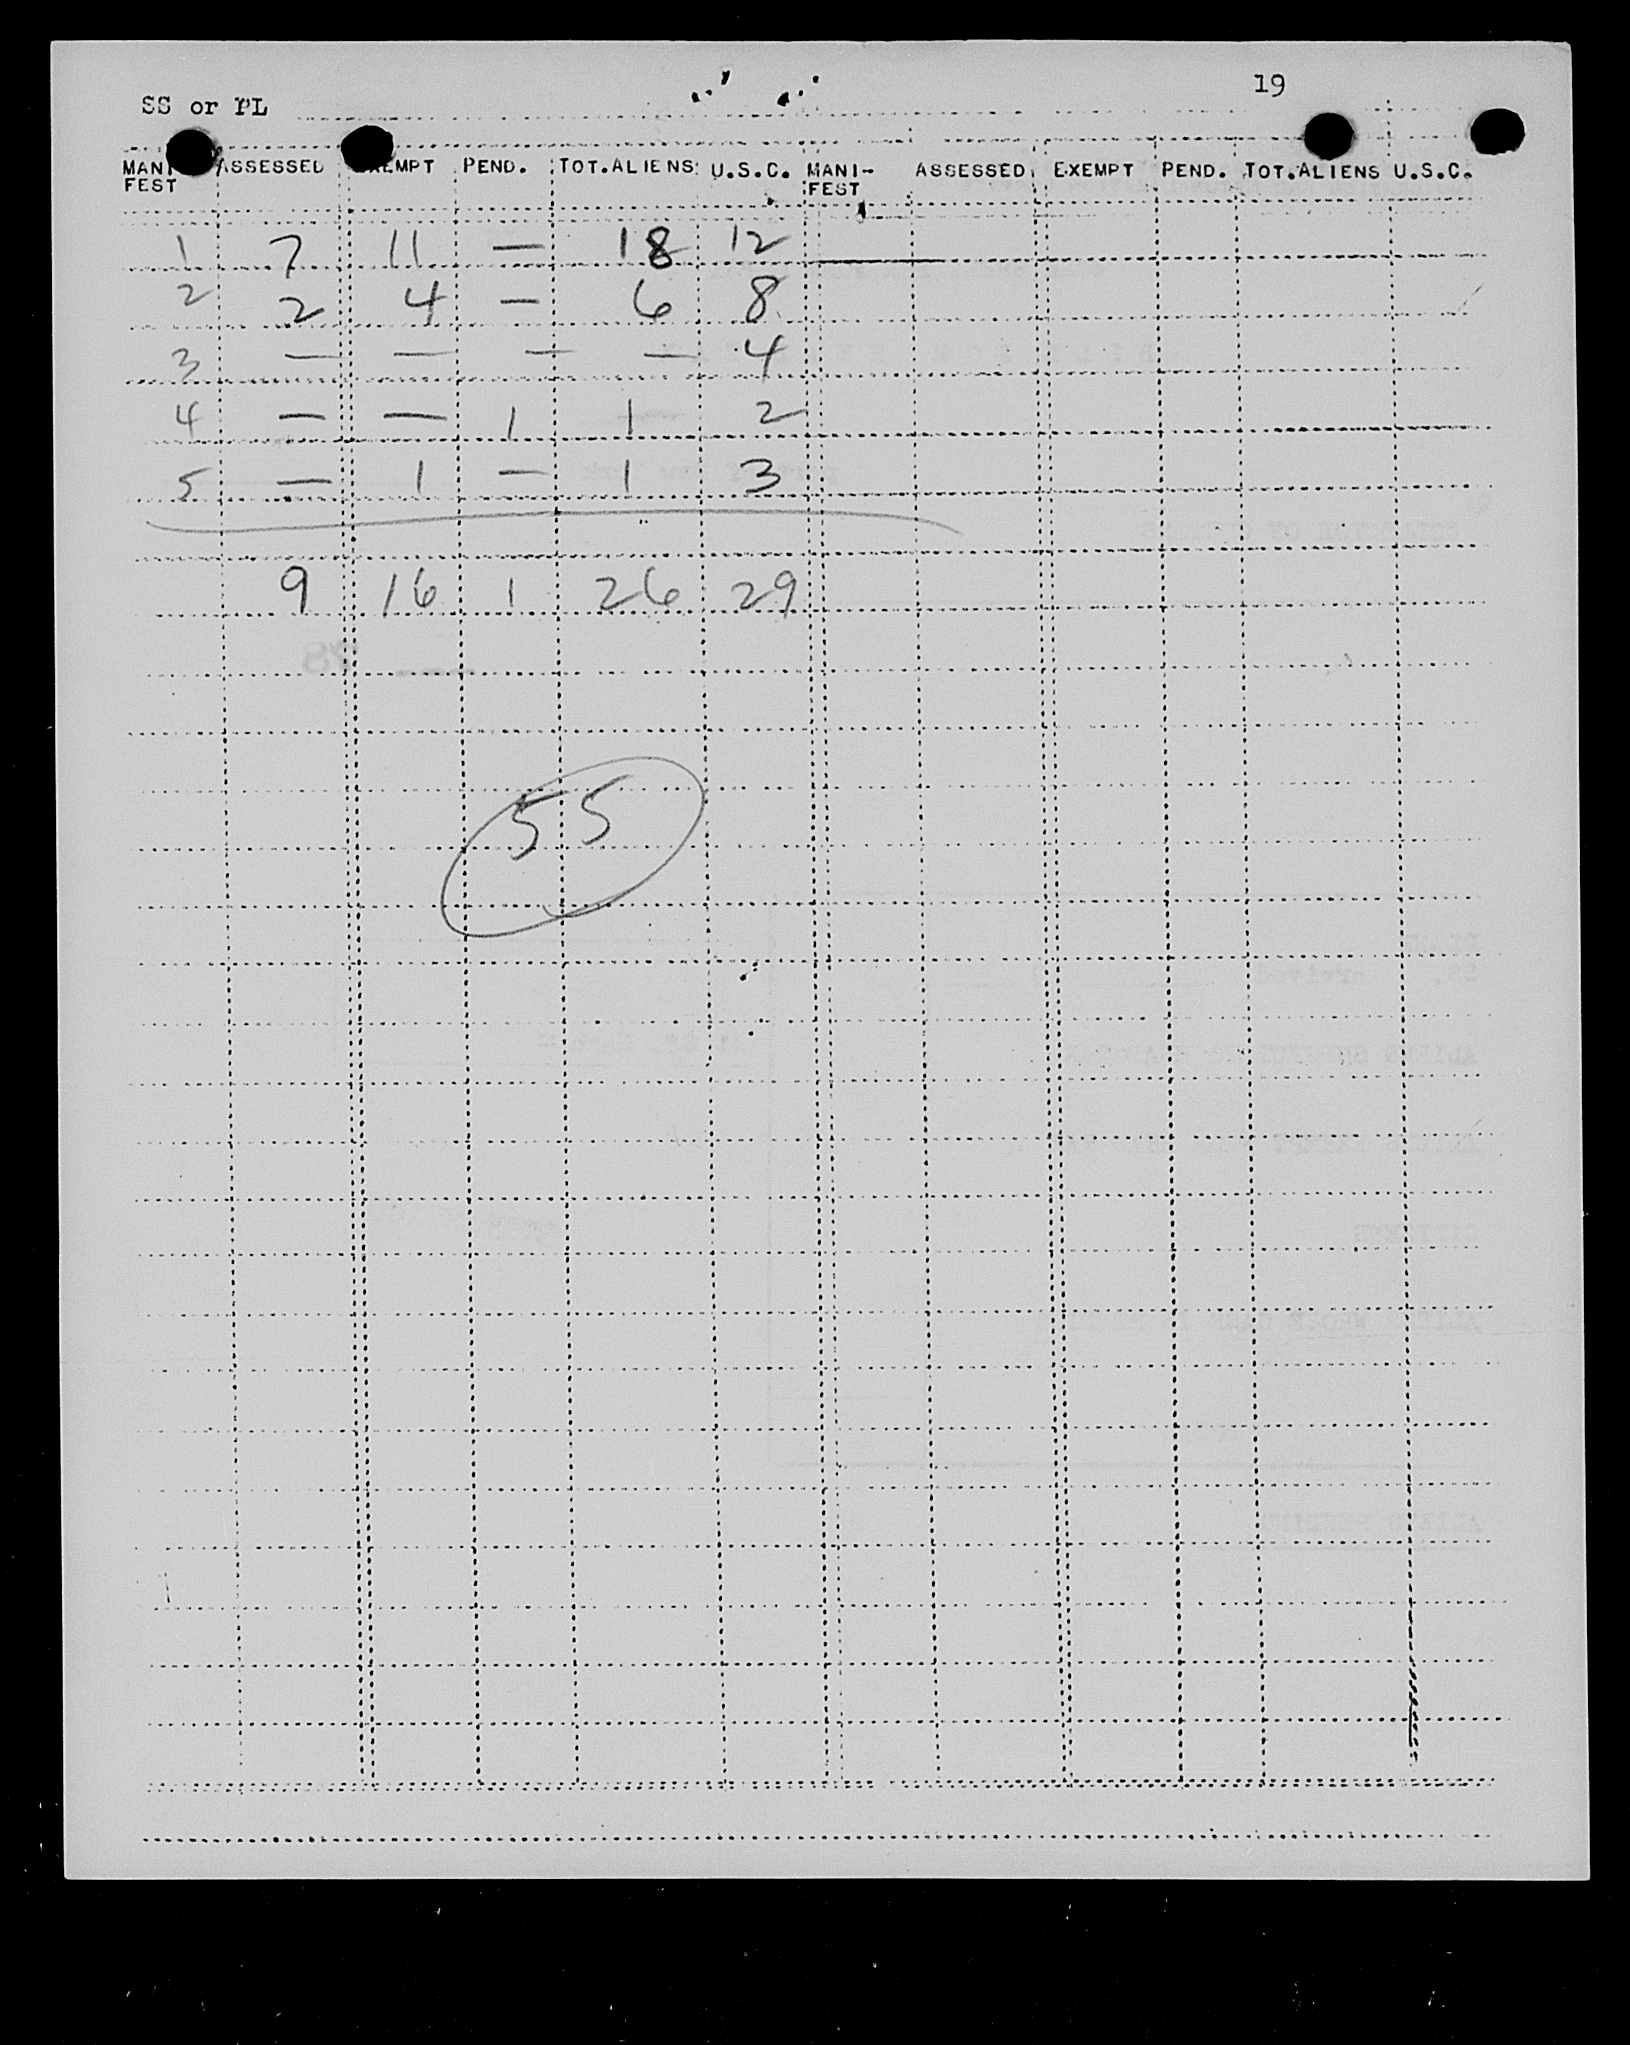 19
SS or PL
MANIFEST ASSESSED EXEMPT PEND. TOT.ALIENS U.S.C. MANI- ASSESSED EXEMPT PEND. TOT.ALIENS U.S.C.
FEST
1 7 11 — 18 12
2 2 4 — 6 8
3 — — — — 4
4 — — 1 1 2
5 — 1 — 1 3
9 16 1 26 29
55